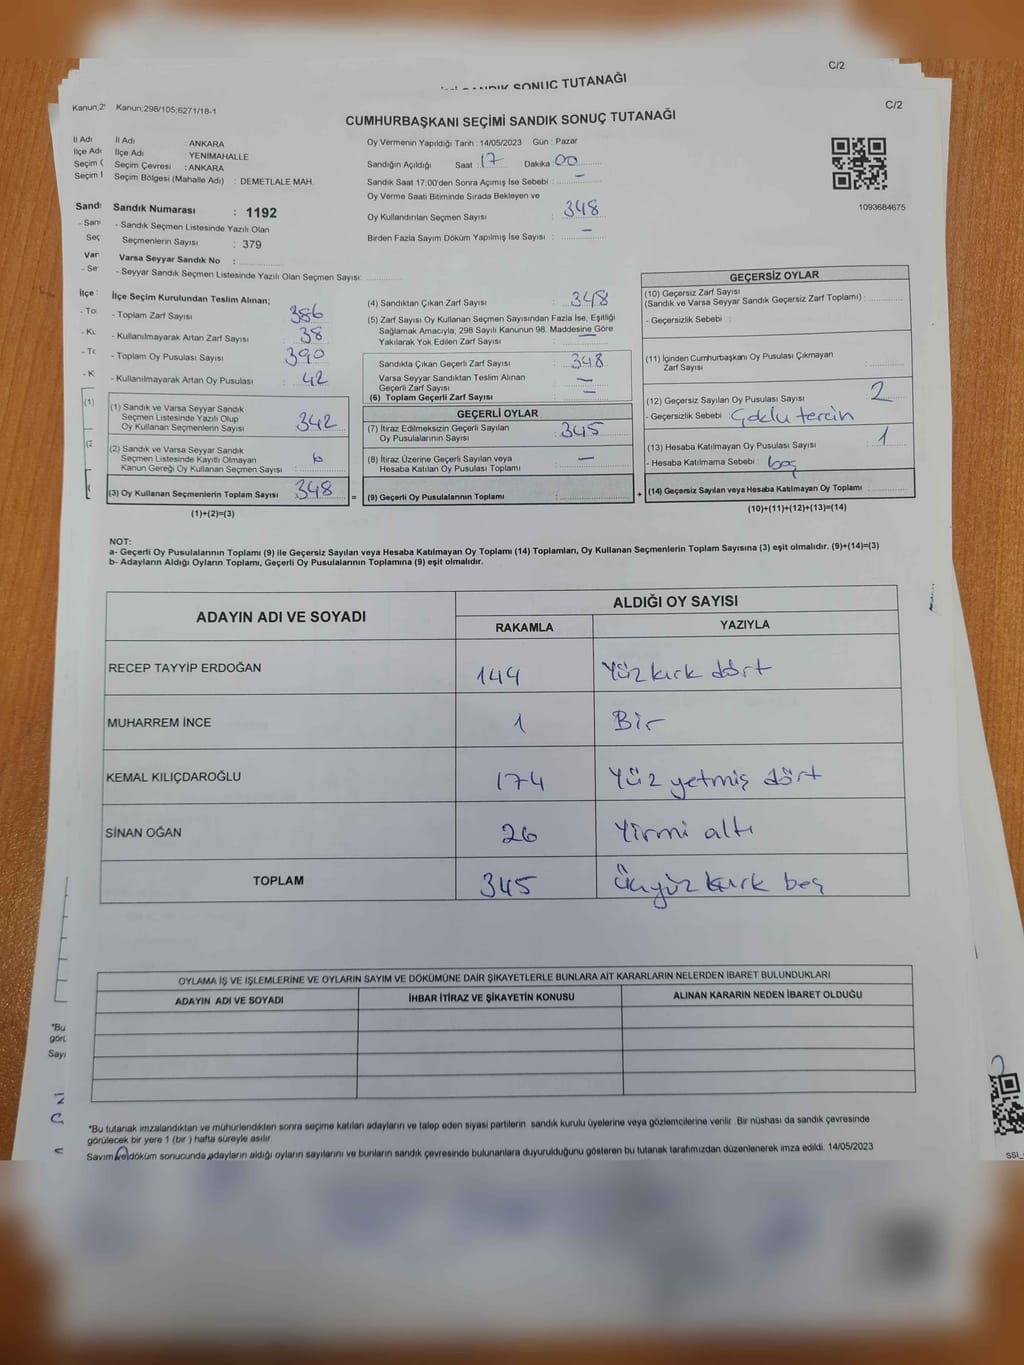 C/2
SANDIK SONUÇ TUTANAĞI
Kanun;298/105;6271/18-1
C/2
CUMHURBAŞKANI SEÇİMİ SANDIK SONUÇ TUTANAĞI
İl Adı : ANKARA
İlçe Adı : YENİMAHALLE
Seçim Çevresi : ANKARA
Seçim Bölgesi (Mahalle Adı) : DEMETLALE MAH.
Oy Vermenin Yapıldığı Tarih : 14/05/2023 Gün : Pazar
Sandığın Açıldığı Saat : 17 Dakika : 00
Sandık Saat 17:00'den Sonra Açılmış İse Sebebi : -
Oy Verme Saati Bitiminde Sırada Bekleyen ve
Oy Kullandırılan Seçmen Sayısı : 348
Birden Fazla Sayım Döküm Yapılmış İse Sayısı : -
1093684675
Sandık Numarası : 1192
- Sandık Seçmen Listesinde Yazılı Olan
Seçmenlerin Sayısı : 379
Varsa Seyyar Sandık No :
- Seyyar Sandık Seçmen Listesinde Yazılı Olan Seçmen Sayısı:
İlçe Seçim Kurulundan Teslim Alınan;
- Toplam Zarf Sayısı : 386
- Kullanılmayarak Artan Zarf Sayısı : 38
- Toplam Oy Pusulası Sayısı : 390
- Kullanılmayarak Artan Oy Pusulası : 42
(1) Sandık ve Varsa Seyyar Sandık
Seçmen Listesinde Yazılı Olup
Oy Kullanan Seçmenlerin Sayısı : 342
(2) Sandık ve Varsa Seyyar Sandık
Seçmen Listesinde Kayıtlı Olmayan
Kanun Gereği Oy Kullanan Seçmen Sayısı : 6
(3) Oy Kullanan Seçmenlerin Toplam Sayısı : 348
(1)+(2)=(3)
(4) Sandıktan Çıkan Zarf Sayısı : 348
(5) Zarf Sayısı Oy Kullanan Seçmen Sayısından Fazla İse, Eşitliği
Sağlamak Amacıyla; 298 Sayılı Kanunun 98. Maddesine Göre
Yakılarak Yok Edilen Zarf Sayısı : -
Sandıkta Çıkan Geçerli Zarf Sayısı : 348
Varsa Seyyar Sandıktan Teslim Alınan
Geçerli Zarf Sayısı : -
(6) Toplam Geçerli Zarf Sayısı : -
GEÇERLİ OYLAR
(7) İtiraz Edilmeksizin Geçerli Sayılan
Oy Pusulalarının Sayısı : 345
(8) İtiraz Üzerine Geçerli Sayılan veya
Hesaba Katılan Oy Pusulası Toplamı : -
= (9) Geçerli Oy Pusulalarının Toplamı :
GEÇERSİZ OYLAR
(10) Geçersiz Zarf Sayısı
(Sandık ve Varsa Seyyar Sandık Geçersiz Zarf Toplamı) :
- Geçersizlik Sebebi :
(11) İçinden Cumhurbaşkanı Oy Pusulası Çıkmayan
Zarf Sayısı :
(12) Geçersiz Sayılan Oy Pusulası Sayısı : 2
- Geçersizlik Sebebi : Çoklu tercih
(13) Hesaba Katılmayan Oy Pusulası Sayısı : 1
- Hesaba Katılmama Sebebi : boş
+ (14) Geçersiz Sayılan veya Hesaba Katılmayan Oy Toplamı :
(10)+(11)+(12)+(13)=(14)
NOT:
a- Geçerli Oy Pusulalarının Toplamı (9) ile Geçersiz Sayılan veya Hesaba Katılmayan Oy Toplamı (14) Toplamları, Oy Kullanan Seçmenlerin Toplam Sayısına (3) eşit olmalıdır. (9)+(14)=(3)
b- Adayların Aldığı Oyların Toplamı, Geçerli Oy Pusulalarının Toplamına (9) eşit olmalıdır.
ADAYIN ADI VE SOYADI ALDIĞI OY SAYISI
RAKAMLA YAZIYLA
RECEP TAYYİP ERDOĞAN 144 Yüz kırk dört
MUHARREM İNCE 1 Bir
KEMAL KILIÇDAROĞLU 174 Yüz yetmiş dört
SİNAN OĞAN 26 Yirmi altı
TOPLAM 345 Üçyüz kırk beş
OYLAMA İŞ VE İŞLEMLERİNE VE OYLARIN SAYIM VE DÖKÜMÜNE DAİR ŞİKAYETLERLE BUNLARA AİT KARARLARIN NELERDEN İBARET BULUNDUKLARI
ADAYIN ADI VE SOYADI İHBAR İTİRAZ VE ŞİKAYETİN KONUSU ALINAN KARARIN NEDEN İBARET OLDUĞU
*Bu tutanak imzalandıktan ve mühürlendikten sonra seçime katılan adayların ve talep eden siyasi partilerin sandık kurulu üyelerine veya gözlemcilerine verilir. Bir nüshası da sandık çevresinde
görülecek bir yere 1 (bir ) hafta süreyle asılır.
Sayım ve döküm sonucunda adayların aldığı oyların sayılarını ve bunların sandık çevresinde bulunanlara duyurulduğunu gösteren bu tutanak tarafımızdan düzenlenerek imza edildi. 14/05/2023